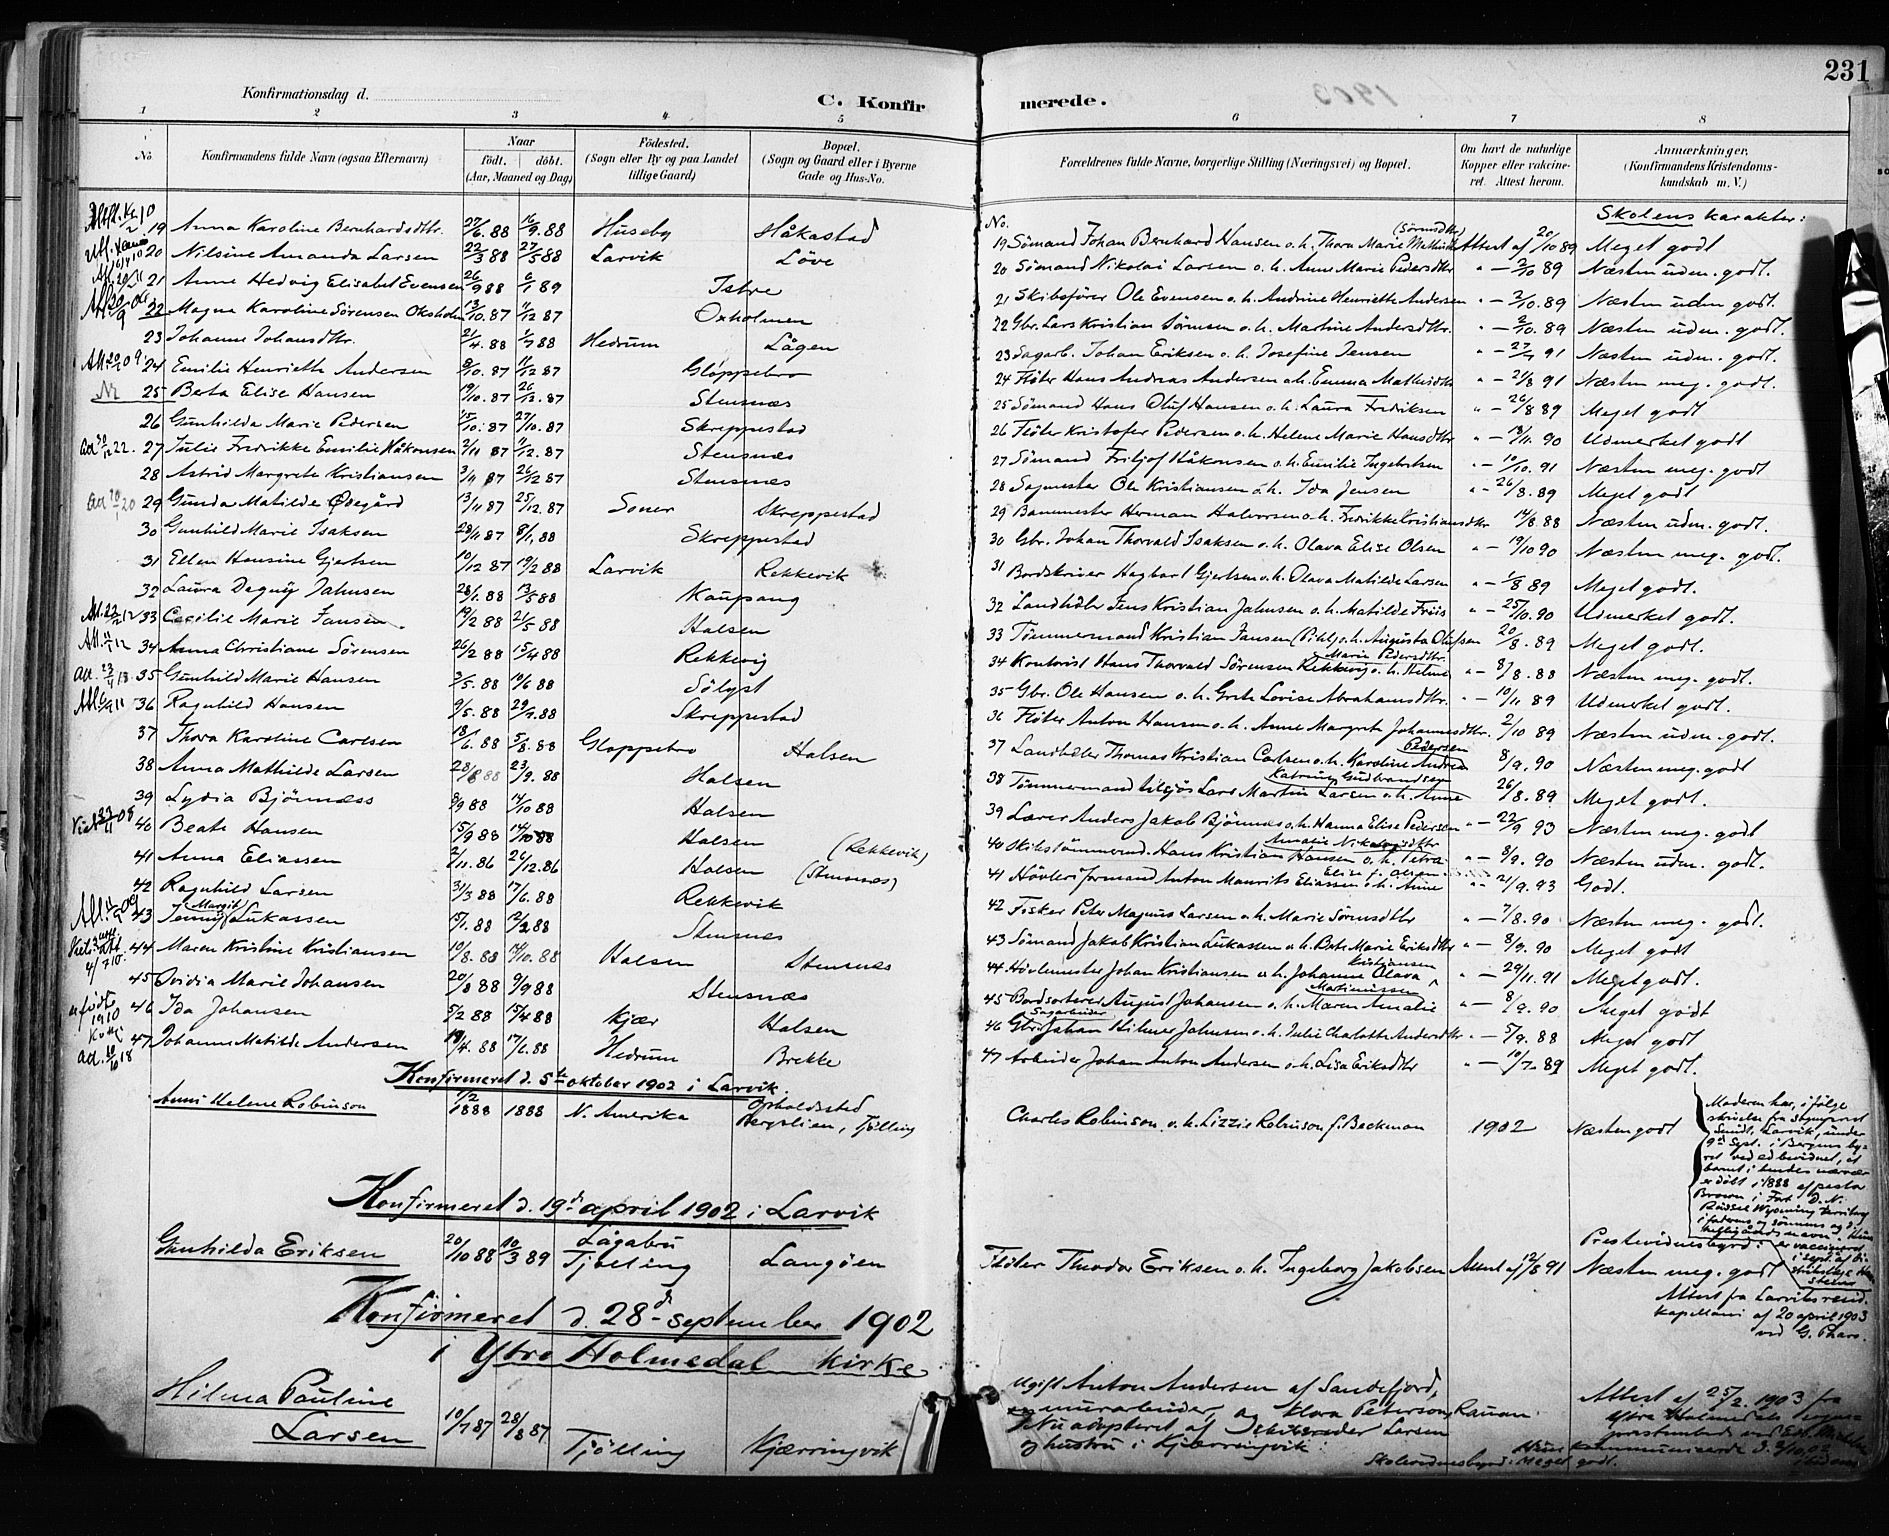 231
Konfirmationsdag d.
C. Konfirmerede.
1 2 3 4 5 6 7 8
No. Konfirmandens fulde Navn (ogsaa Efternavn) Naar født. døbt. (Aar, Maaned og Dag) Fødested. (Sogn eller By og paa Landet tillige Gaard) Bopæl. (Sogn og Gaard eller i Byerne Gade og Hus-No. Forældrenes fulde Navne, borgerlige Stilling (Næringsvei) og Bopæl. Om havt de naturlige Kopper eller vakcineret. Attest herom. Anmærkninger, (Konfirmandens Kristendomskundskab m. V.)
No. Skolens karakter:
19 Anna Karoline Bernhardsdtr. 27/6. 88 16/9. 88 Huseby Håkastad 19 Sømand Johan Bernhard Hansen o. h. Thora Marie Mathisdtr (Sørensdtr) Attest af 20/10 89 Meget godt
20 Nilsine Amanda Larsen 22/3 88 27/5 88 Larvik Løve 20 Sømand Nikolai Larsen o. h. Anne Marie Pedersdtr " — 2/10 89 Næsten udm. godt.
21 Anne Hedvig Elisabet Evensen 26/9 88 6/1 89 Istre 21 Skibsfører Ole Evensen o. h. Andrine Henriette Andersen " — 2/10. 89 Næsten udm godt.
22 Magna Karoline Sørensen Oksholm 13/10. 87 11/12 87 Oxholmen 22 Gbr. Lars Kristian Sørensen o. h. Martine Andersdtr. " — 2/10. 89 Næsten udm. godt.
23 Johanne Johansdtr. 21/4. 88 1/7 88 Hedrum Lågen 23 Sagarb. Johan Eriksen o. h. Josefine Jensen " — 27/7 91 Næsten udm. godt.
24 Emilie Henriette Andersen 8/10. 87 11/12 87 Gloppebro 24 Fløter Hans Andreas Andersen o. h. Emma Mathisdtr " — 21/8 91 Næsten meg. godt.
25 Berta Elise Hansen 19/10. 87 26/12. 87 Stensnæs 25 Sømand Hans Oluf Hansen o. h. Laura Fredriksen " — 26/8 89 Meget godt
26 Gunhilda Marie Pedersen 15/10. 87 27/10. 87 Skreppestad 26 Fløter Kristofer Pedersen o. h. Helene Marie Hansdtr " — 13/11. 90 Udmerket godt
27 Julie Fredrikke Emilie Håkonsen 2/11 87 11/12. 87 Stensnæs 27 Sømand Fritjof Håkonsen o. h. Emilie Ingebretsen " — 10/10. 91 Næsten meg. godt
28 Astrid Margrete Kristiansen 3/11 87 26/12 87 Stensnæs 28 Sagmester Ole Kristiansen o. h. Ida Jensen " — 26/8. 89 Meget godt
29 Gunda Matilde Ødegård 13/11 87 25/12. 87 Soner Skreppestad 29 Banemester Herman Halvorsen o. h. Fredrikke Kristiansdtr 14/8. 88 Næsten udm. godt.
30 Gunhild Marie Isaksen 28/11 87 8/1. 88 Skreppestad 30 Gbr. Johan Thorvald Isaksen o. h. Olava Elise Olsen " — 19/10 90 Næsten meg. godt.
31 Ellen Hansine Gjertsen 10/12 87 19/2 88 Larvik Rekkevik 31 Bordskriver Hagbart Gjertsen o. h. Olava Matilde Larsen " — 1/8 89 Meget godt.
32 Laura Dagny Jahnsen 28/1. 88 13/5 88 Kaupang 32 Landhdlr Jens Kristian Jahnsen o. h. Matilde Friis " — 25/10. 90 Udmerket godt.
33 Cecilie Marie Jansen. 19/2 88 21/5. 88 Halsen 33 Tømmermand Kristian Jansen (Pihl) o. h. Augusta Olufsen 20/8. 89 Meget godt.
34 Anna Christiane Sørensen 26/2 88 15/4 88 Rekkevig 34 Kontorist Hans Thorvald Sørensen Rekkevig o. h. Petrine Marie Pedersdtr. " — 8/8. 88 Næsten meg. godt.
35 Gunhild Marie Hansen 3/5. 88 10/6 88 Sølyst 35 Gbr. Ole Hansen o. h. Grete Lovise Abrahamsdtr. " — 10/11 89 Udmerket godt.
36 Ragnhild Hansen 9/5. 88 29/7. 88 Skreppestad 36 Fløter Anton Hansen o. h. Anne Margrete Johannesdtr. — 2/10 89 Næsten udm. godt.
37 Thora Karoline Carlsen 18/6. 88 5/8. 88 Gloppebro Halsen 37 Landhdler Thomas Kristian Carlsen o. h. Karoline Andrea Pedersen 8/9. 90 Næsten meg. godt
38 Anna Mathilde Larsen 28/6 88 23/9. 88 Halsen 38 Tømmermand tilsjøs Lars Martin Larsen o. h. Anne Katrine Gudbrandsen 26/8. 89 Meget godt.
39 Lydia Bjønnæss 8/9 88 14/10 88 Halsen 39 Lærer Anders Jakob Bjønnæs o. h. Hanna Elise Pedersen " — 22/9 93 Næsten meg. godt
40 Beate Hansen 15/9 88 14/10 88 Halsen (Rekkevik) 40 Skibstømmermd. Hans Kristian Hansen o. h. Petra Amalie Nikolaisdtr " — 8/9. 90 Næsten udm. godt.
41 Anna Eliassen 2/11. 86 26/12. 86 Halsen (Stensnæs) 41 Høvleriformand Anton Maurits Eliassen o. h. Anne Elise f. Olsen " — 21/9. 93 Godt.
42 Ragnhild Larsen 31/3 88 17/6. 88 Rekkevik 42 Fisker Peter Magnus Larsen o. h. Marie Sørensdtr " — 7/8. 90 Næsten meg. godt.
43 Jenny (Margit) Lukassen 15/1. 88 12/2 88 Stensnæs 43 Sømand Jakob Kristian Lukassen o. h. Berte Marie Eriksdtr " — 8/9. 90 Meget godt
44 Maren Kristine Kristiansen 10/8. 88 14/10. 88 Halsen Stensnæs 44 Høvlemester Johan Kristiansen o. h. Johanne Olava Kristiansen " — 29/11. 91 Meget godt.
45 Ovidia Marie Johansen 20/8 88 9/9 88 Stensnæs 45 Bordsorterer August Johansen o. h. Maren Amalie Martinissen " — 8/9. 90 Meget godt
46 Ida Johansen 5/2 88 15/4 88 Kjær Halsen 46 Gbr. Sagarbeider Johan Hilmer Johnsen o. h. Julie Charlotte Andersdtr. " — 5/9. 88 Meget godt
47 Johanne Matilde Andersen 19/4. 88 17/6. 88 Hedrum Brekke 47 Arbeider Johan Anton Andersen o. h. Lisa Eriksdtr " — 10/7. 89 Meget godt.
Konfirmeret d. 5te oktober 1902 i Larvik.
Anni Helene Robinson 1/2 1888 1888 N. Amerika Opholdssted Bergslien, Tjølling Charles Robinson o. h. Lizzie Robinson f. Beckman 1902 Næsten godt
Moderen har, i følge
skrivelse fra sogneprest
Smidt, Larvik, under
9de Sept. i Bergens by-
ret ved ed bevidnet, at
barnet i hendes nærvær
er døbt i 1888 af pastor
Brown i Fort D. N.
Russel Wyoming Territory
Konfirmeret d. 19de april 1902 i Larvik
Prestevidnesbyrd:
Gunhilda Eriksen 20/10 88 10/3 89 Lågabru Tjølling Langøen Fløter Theodor Eriksen o. h. Ingeborg Jakobsen Attest af 12/8 91 Næsten meg. godt
Attest fra Larviks resid.
kapellani af 20 april 1903
ved G. Thars.
Konfirmeret d. 28de september 1902
i Ytre Holmedal kirke
Hilma Pauline
Larsen 10/7 87 28/8 87 Tjølling Kjærringvik
Ugift Anton Andersen af Sandefjord,
murarbeider, og Klara Peterson, Rauan.
Nu adopteret af Larsen
og hustru i Kjærringvik.
Attest af 25/2. 1903 fra
Ytre Holmedals sogne-
prestembede
kommuniserede d. 9/10. 02
Skolevidnesbyrd: Meget godt.